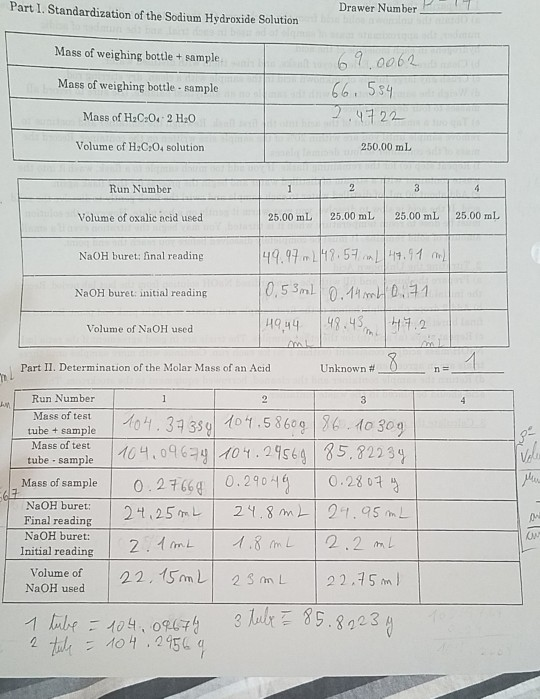 Part 1. Standardization of the Sodium Hydroxide Solution Drawer Number
Mass of weighing bottle + sample 69.0062
Mass of weighing bottle - sample 66.534
Mass of H₂C₂O₄ · 2 H₂O 2.4722
Volume of H₂C₂O₄ solution 250.00 mL
Run Number 1 2 3 4
Volume of oxalic acid used 25.00 mL 25.00 mL 25.00 mL 25.00 mL
NaOH buret: final reading 49.97 mL 48.57 mL 47.91 ml
NaOH buret: initial reading 0.53 ml 0.14 ml 0.71
Volume of NaOH used 49.44 mL 48.43 mL 47.2 mL
Part II. Determination of the Molar Mass of an Acid Unknown # 8 n = 1
Run Number 1 2 3 4
Mass of test tube + sample 104.3733g 104.5860g 86.1030g
Mass of test tube - sample 104.0967g 104.2956g 85.8223g
Mass of sample 0.2766g 0.2904g 0.2807 g
NaOH buret: Final reading 24,25 mL 24.8 mL 24.95 mL
NaOH buret: Initial reading 2.1 mL 1.8 mL 2.2 mL
Volume of NaOH used 22.15 mL 23 mL 22,75 ml
1 tube = 104.0967g 3 tube = 85.8223 g
2 tube = 104.2956 g